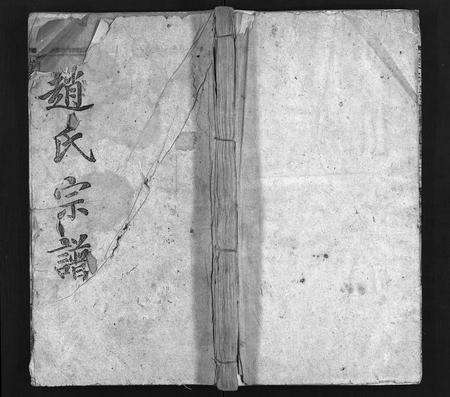 趙氏宗譜